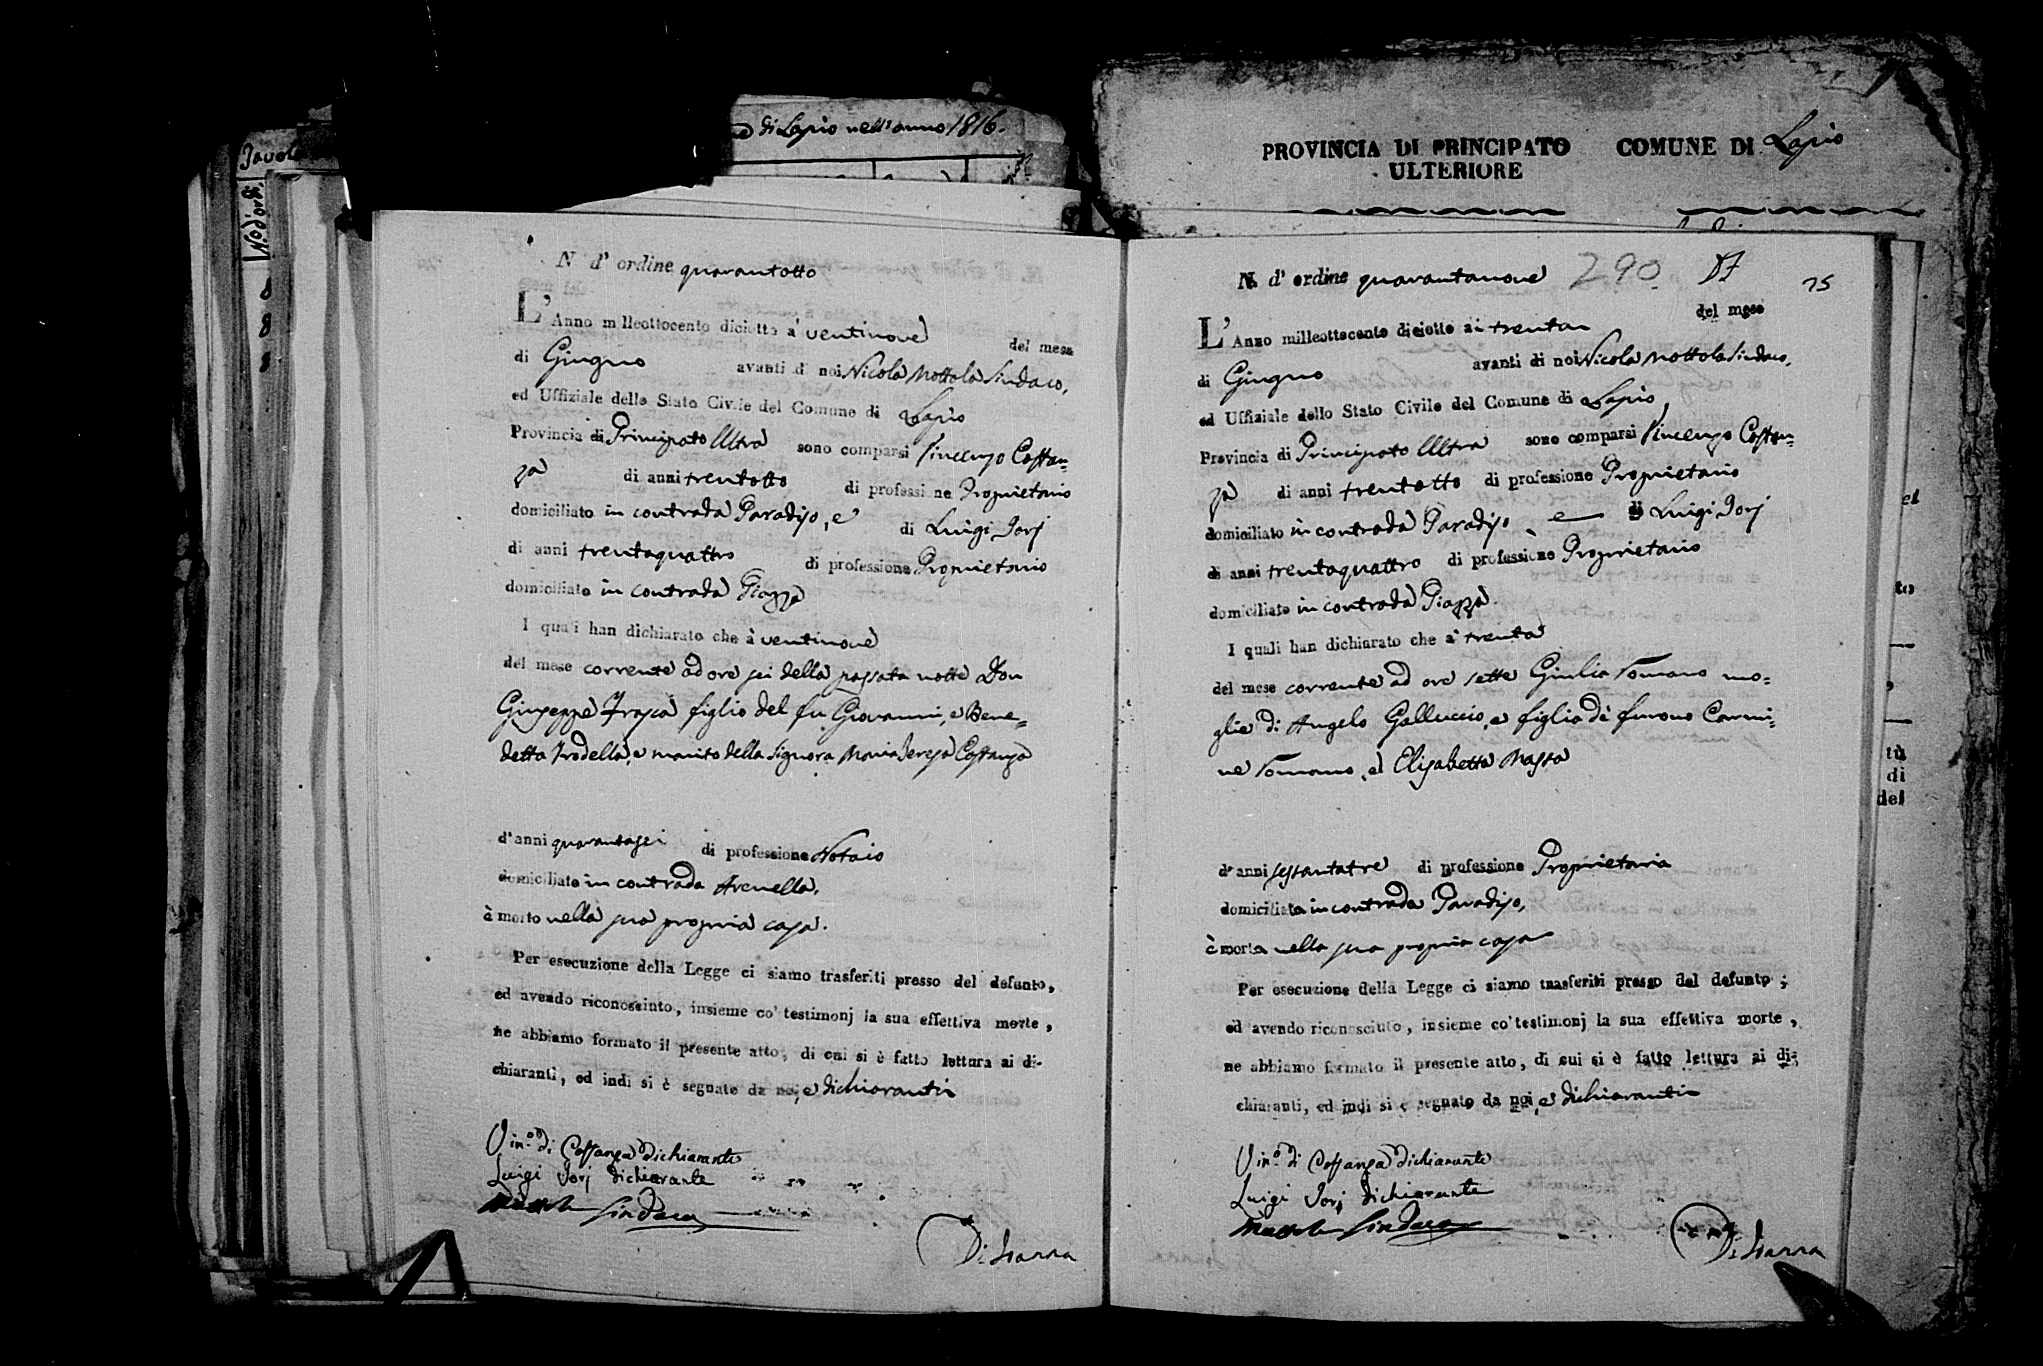 di Lapio nell'anno 1816.
Tavol
No d'ord.
PROVINCIA DI PRINCIPATO ULTERIORE
COMUNE DI Lapio
N d' ordine quarantotto
L'Anno milleottocento diciotto a' ventinove del mese
di Giugno avanti di noi Nicola Nottola Sindaco,
ed Uffiziale dello Stato Civile del Comune di Lapio
Provincia di Principato Ultra sono comparsi Vincenzo Costan-
za di anni trentotto di professione Proprietario
domiciliato in contrada Paradiso, e di Luigi Iorj
di anni trentaquattro di professione Proprietario
domiciliato in contrada Piazza
I quali han dichiarato che a ventinove
del mese corrente ad ore sei della passata notte Don
Giuseppe Trosca figlio del fu Giovanni, e Bene=
detta Trodella, e marito della Signora Maria Teresa Costanza
d'anni quarantasei di professione Notaio
domiciliato in contrada Arenella,
è morto nella sua propria casa.
Per esecuzione della Legge ci siamo trasferiti presso del defunto,
ed avendo riconosciuto, insieme co' testimonj la sua effettiva morte,
ne abbiamo formato il presente atto, di cui si è fatto lettura ai di-
chiaranti, ed indi si è segnato da noi, e dichiaranti
Vin.o di Costanza dichiarante
Luigi Iorj dichiarante
Nottola Sindaco
Di Ianna
N. d' ordine quarantanove 290 57 25
L'Anno milleottocento diciotto ai trenta del mese
di Giugno avanti di noi Nicola Nottola Sindaco,
ed Uffiziale dello Stato Civile del Comune di Lapio,
Provincia di Principato Ultra sono comparsi Vincenzo Costan=
za di anni trentotto di professione Proprietario
domiciliato in contrada Paradiso e di Luigi Iorj
di anni trentaquattro di professione Proprietario
domiciliato in contrada Piazza.
I quali han dichiarato che a' trenta
del mese corrente ad ore sette Giulia Romano mo=
glie di Angelo Galluccio, e figlia de' furono Carmi=
ne Romano, ed Elisabetta Massa
d'anni sessantatre di professione Proprietaria
domiciliata in contrada Paradiso,
è morta nella sua propria casa
Per esecuzione della Legge ci siamo trasferiti presso del defunto;
ed avendo riconosciuto, insieme co' testimonj la sua effettiva morte,
ne abbiamo formato il presente atto, di cui si è fatto lettura ai di-
chiaranti, ed indi si è segnato da noi, e dichiaranti
Vin.o di Costanza dichiarante
Luigi Iorj dichiarante
Nottola Sindaco
Di Ianna
to
tù
di
del